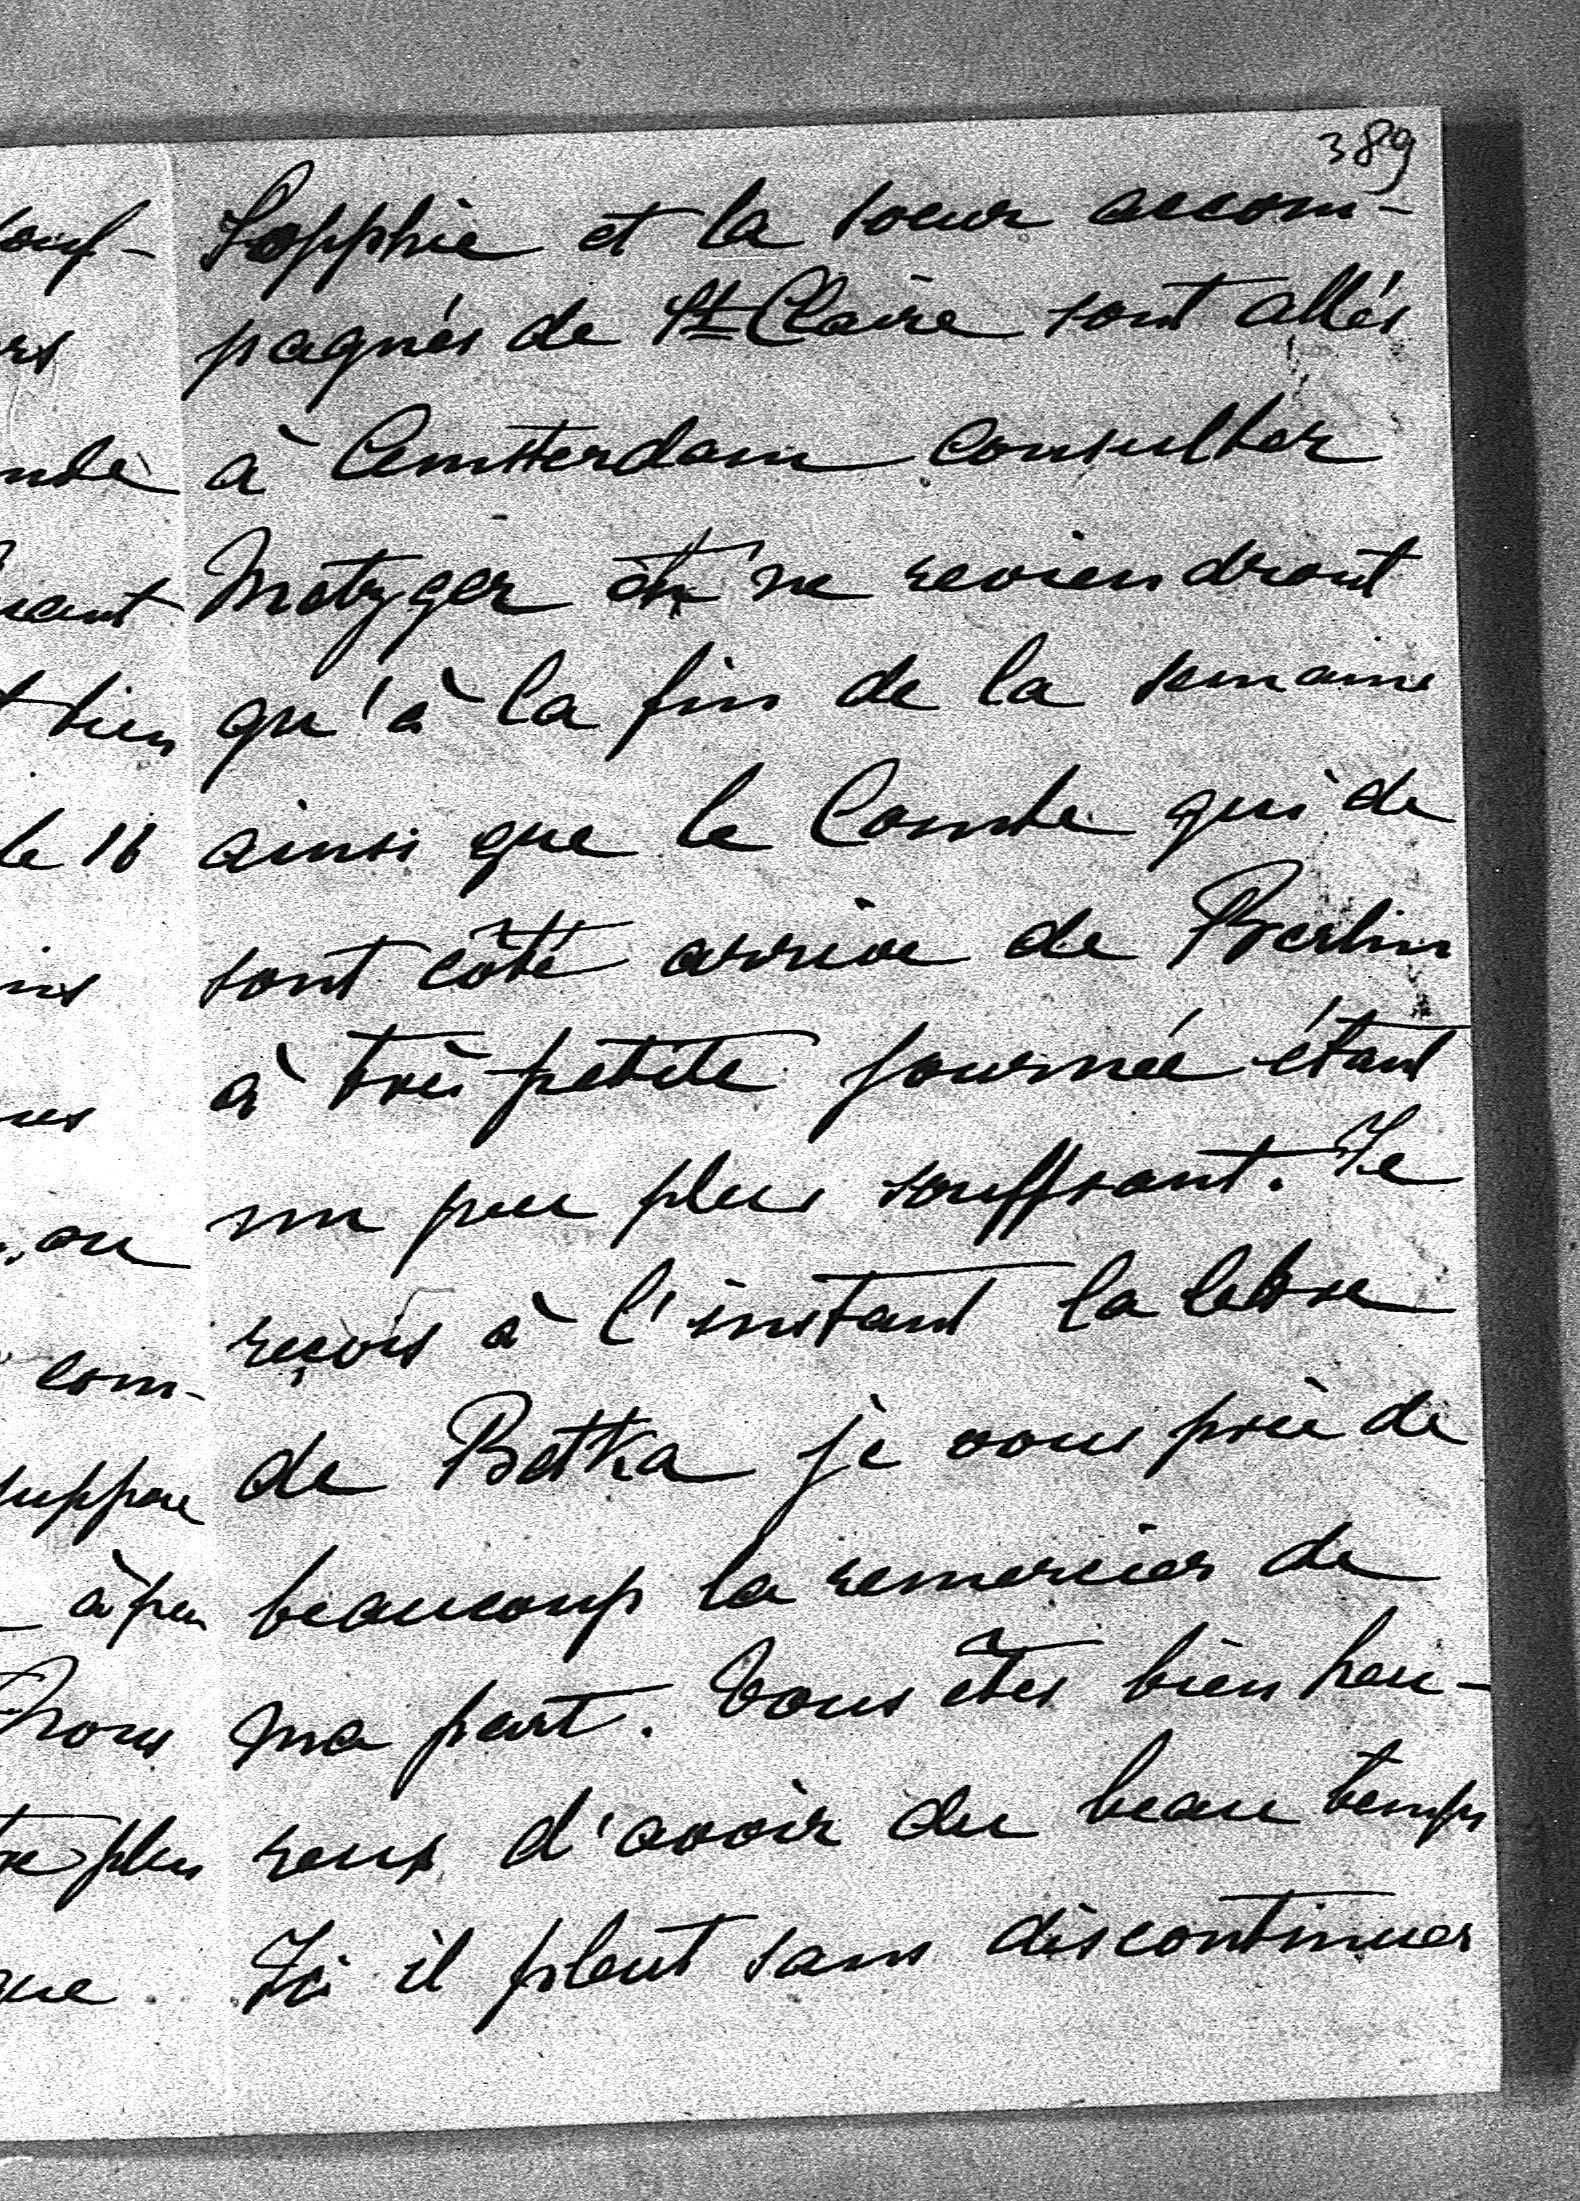 389
Sopphie et la soeur accom-
pagnés de St Claire sont allés
à Amsterdam consulter
Metzger et ne reviendront
qu'à la fin de la semaine
ainsi que le Comte qui de
sont côté arrive de Berlin
à très petite journée étant
un peu plus souffrant. Je
reçois à l'instant la lettre
de Betka je vous prie de
beaucoup la remercier de
ma part. Vous êtes bien heu-
reux d'avoir du beau temps
Ici il pleut sans discontinuer
ouf-
rs
nde
uant
t bien
le 16
ins
us
ou
com-
suppose
à peu
Nous
plus
que